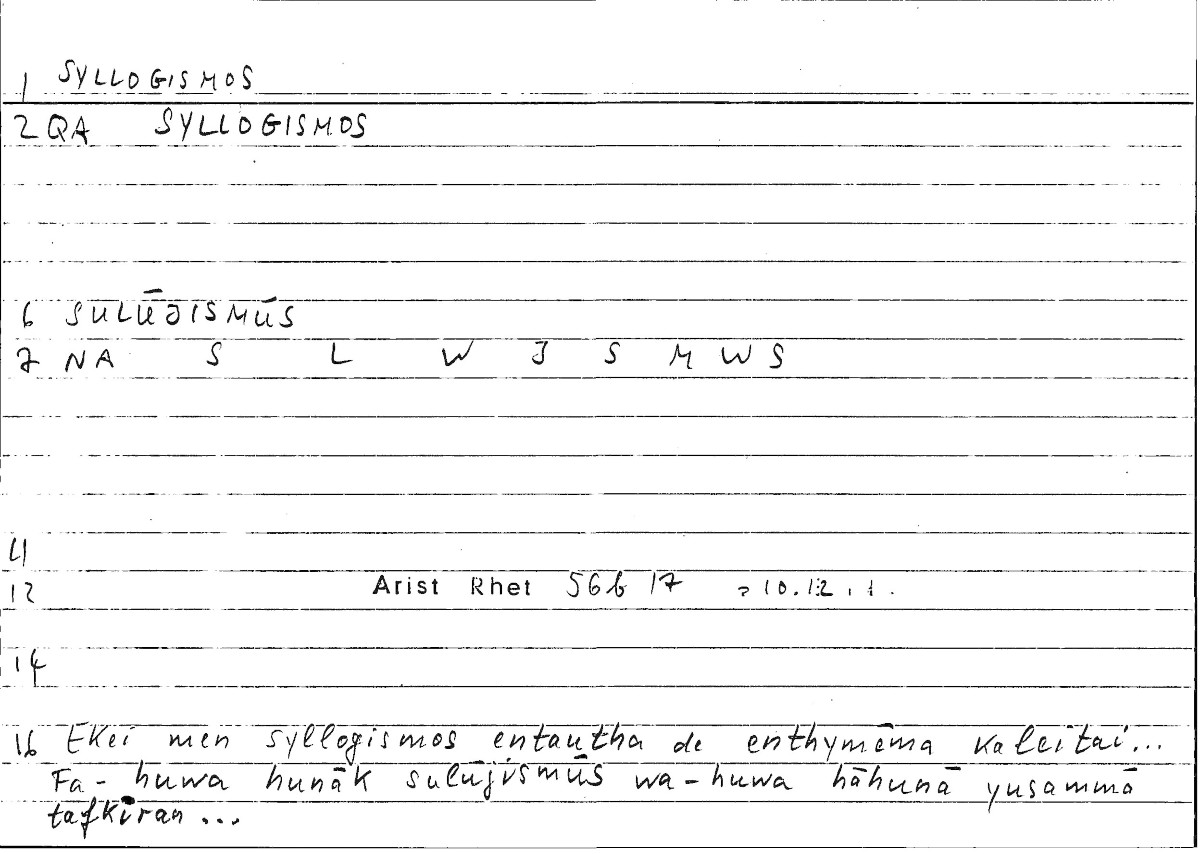 1 SYLLOGISMOS
2 QA SYLLOGISMOS
6 SULŪJISMŪS
7 NA S L W J S M W S
11
12 Arist Rhet 56b 17 = 10.12
14
16 Ekei men syllogismos entautha de enthymēma kaleitai...
Fa-huwa hunāk sulūjismūs wa-huwa hāhunā yusammā
tafkīran ...